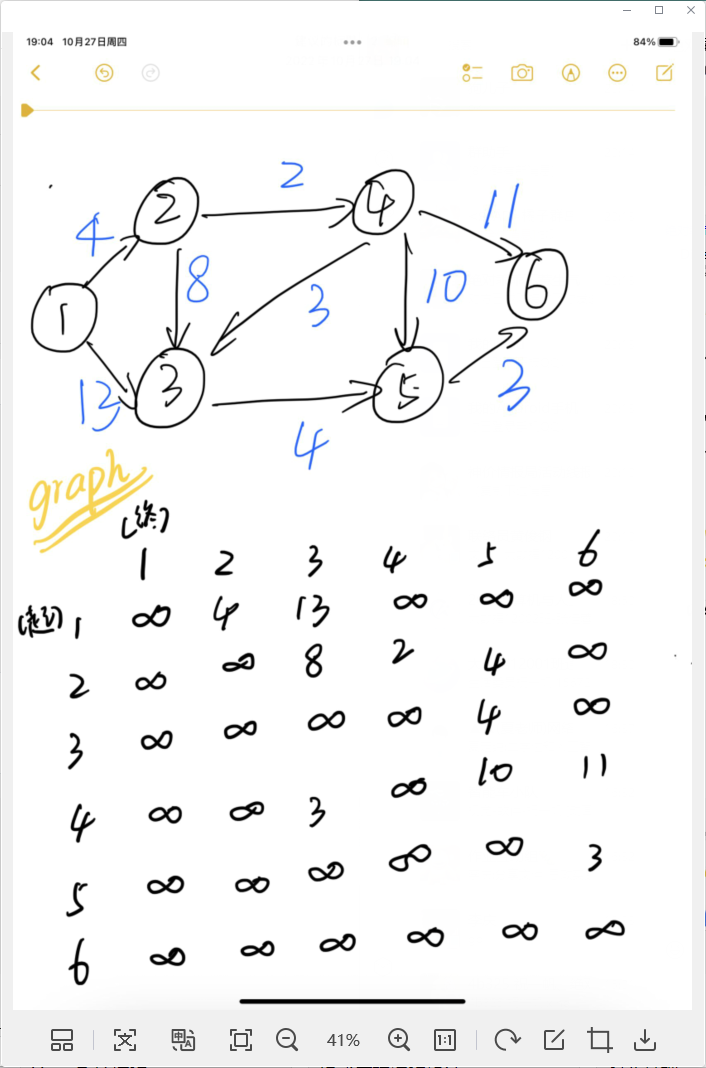 19:04 10月27日周四
84%
2
4
2
4
11
8
10
6
1
3
3
13
5
3
4
graph
(终)
1 2 3 4 5 6
(起) 1 ∞ 4 13 ∞ ∞ ∞
2 ∞ ∞ 8 2 4 ∞
3 ∞ ∞ ∞ ∞ 4 ∞
4 ∞ ∞ 3 ∞ 10 11
5 ∞ ∞ ∞ ∞ ∞ 3
6 ∞ ∞ ∞ ∞ ∞ ∞
41%
1:1